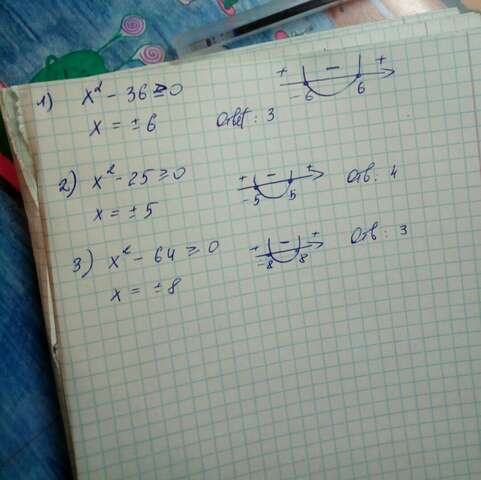 1) x² - 36 ≥ 0
x = ± 6
+ - +
-6 6
Ответ: 3
2) x² - 25 ≥ 0
x = ± 5
+ - +
-5 5
Отв: 4
3) x² - 64 ≥ 0
x = ± 8
+ - +
-8 8
Отв: 3